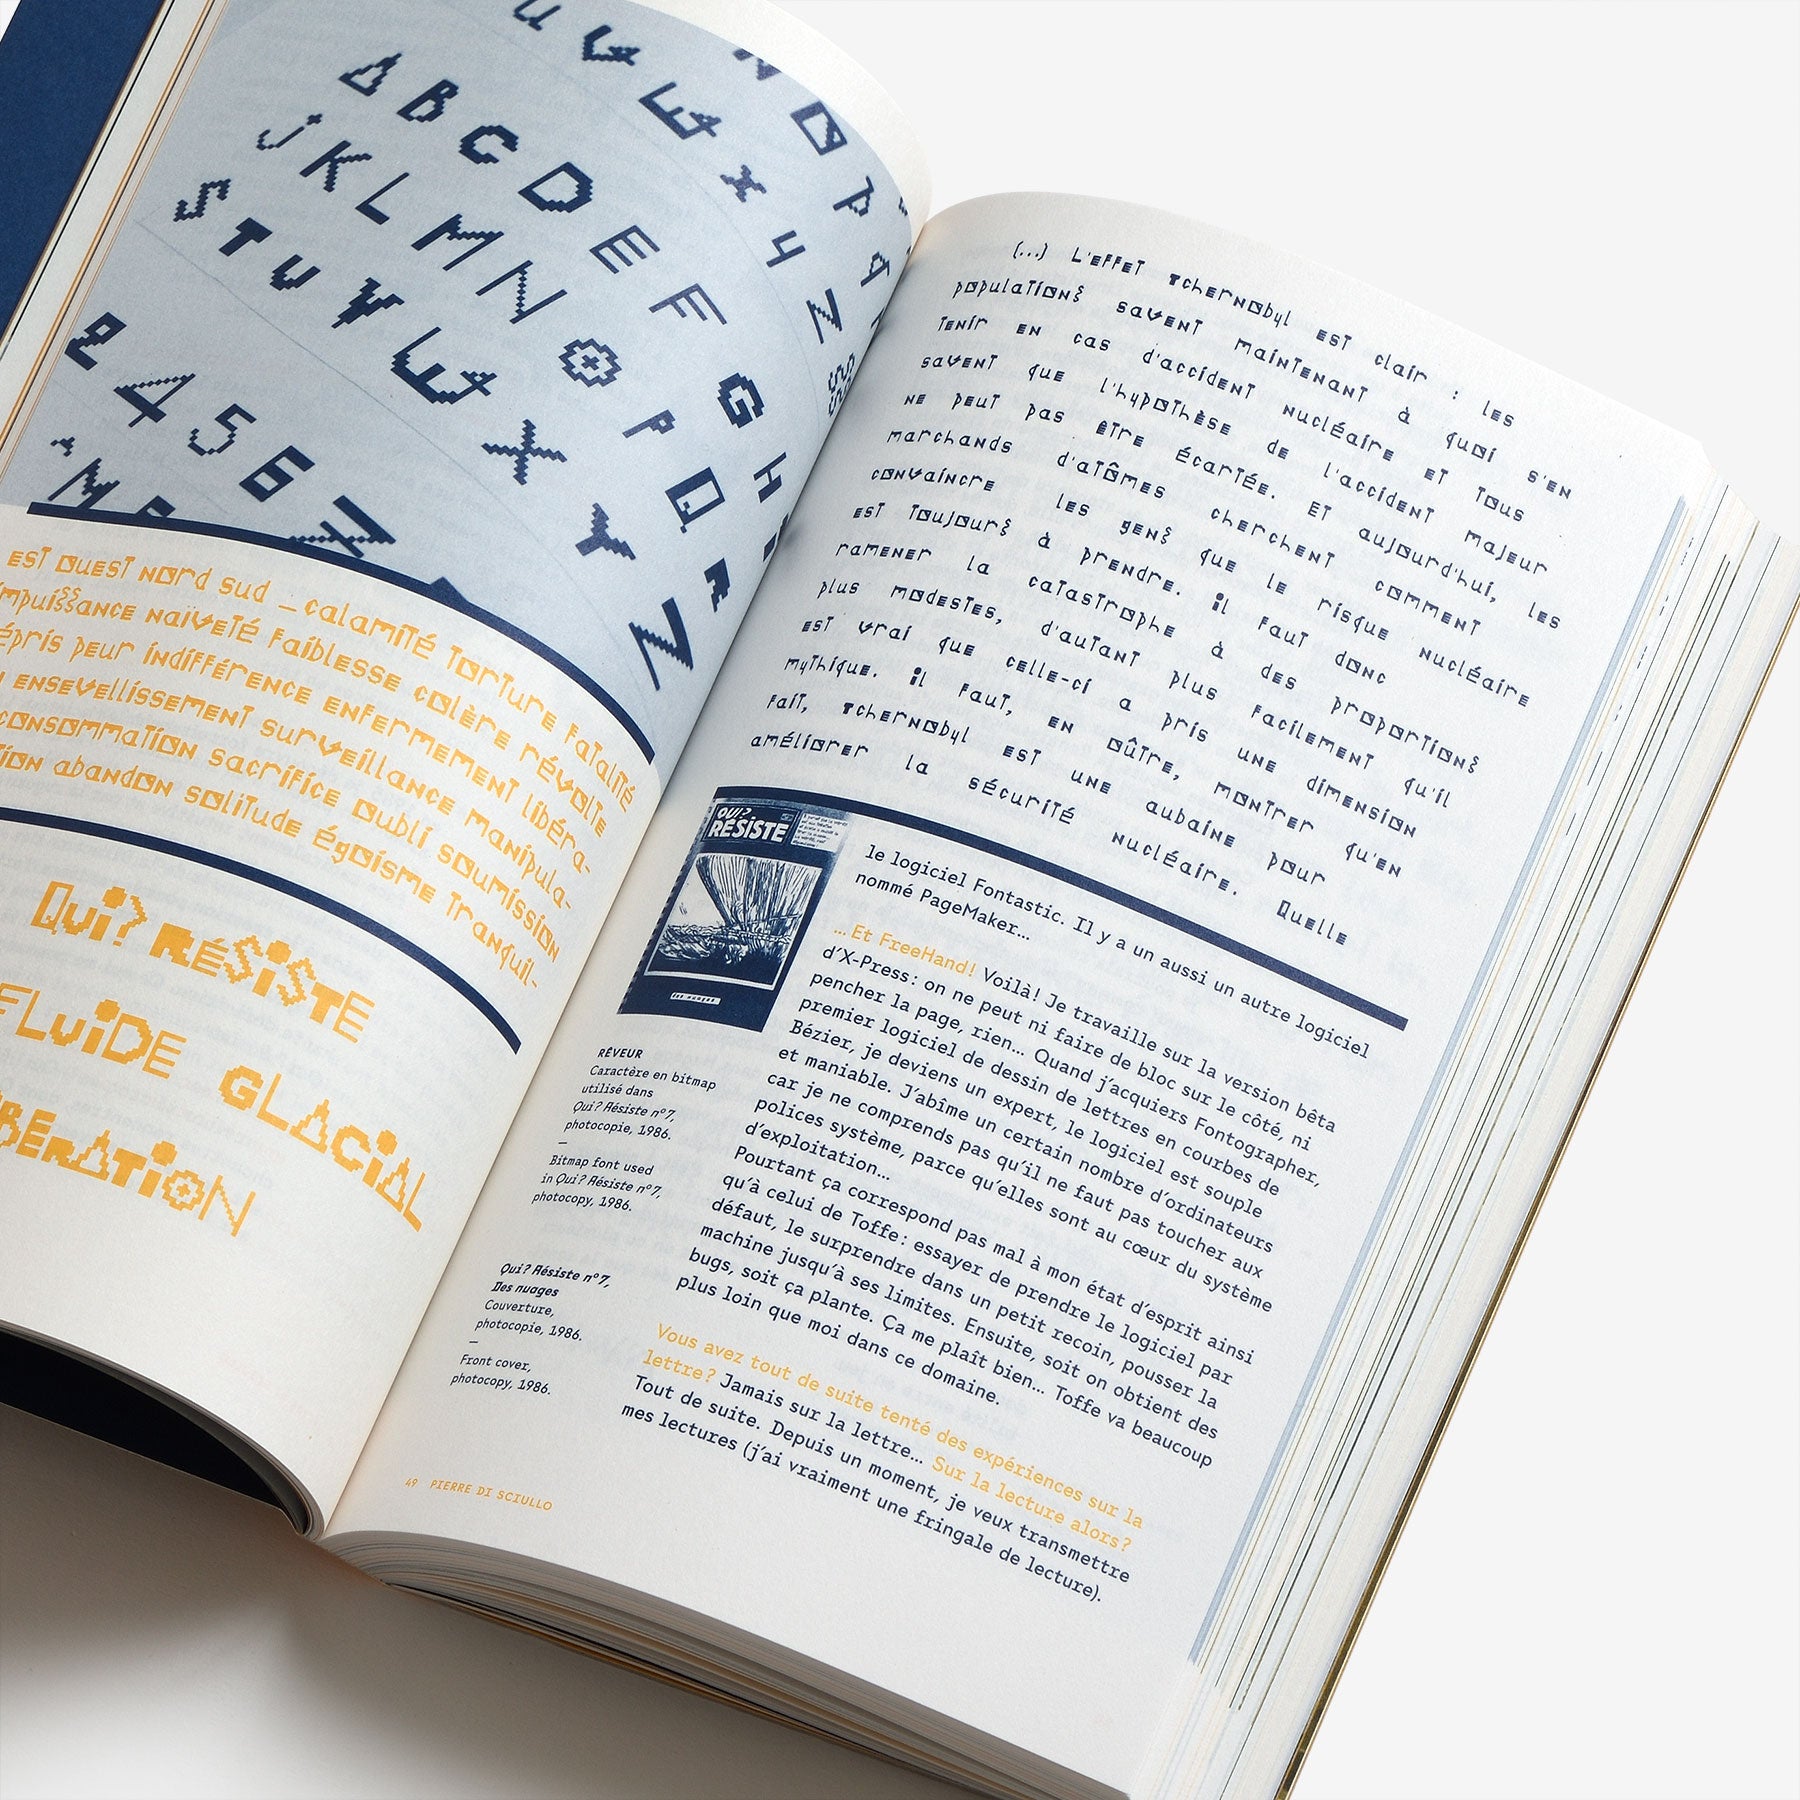 A B C D E F G H
J K L M N O P Q R
S T U V E X Y Z
2 4 5 6
EST OUEST NORD SUD _ CALAMITÉ TORTURE FATALITÉ
MPUISSANCE NAÏVETÉ FAIBLESSE COLÈRE RÉVOLTE
ÉPRIS PEUR INDIFFÉRENCE ENFERMEMENT LIBÉRA-
ENSEVELLISSEMENT SURVEILLANCE MANIPULA-
CONSOMMATION SACRIFICE OUBLI SOUMISSION
ION ABANDON SOLITUDE ÉGOISME TRANQUIL-
QUI? RÉSISTE
FLUIDE GLACIAL
BÉRATION
(...) L'EFFET TCHERNOBYL EST CLAIR : LES
POPULATIONS SAVENT MAINTENANT À QUOI S'EN
TENIR EN CAS D'ACCIDENT NUCLÉAIRE ET TOUS
SAVENT QUE L'HYPOTHÈSE DE L'ACCIDENT MAJEUR
NE PEUT PAS ÊTRE ÉCARTÉE. ET AUJOURD'HUI, LES
MARCHANDS D'ATÔMES CHERCHENT COMMENT
CONVAINCRE LES GENS QUE LE RISQUE NUCLÉAIRE
EST TOUJOURS À PRENDRE. IL FAUT DONC
RAMENER LA CATASTROPHE À DES PROPORTIONS
PLUS MODESTES, D'AUTANT PLUS FACILEMENT QU'IL
EST VRAI QUE CELLE-CI A PRIS UNE DIMENSION
MYTHIQUE. IL FAUT, EN OÛTRE, MONTRER QU'EN
FAIT, TCHERNOBYL EST UNE AUBAINE POUR
AMÉLIORER LA SÉCURITÉ NUCLÉAIRE. QUELLE
QUI?
RÉSISTE
le logiciel Fontastic. Il y a un aussi un autre logiciel
nommé PageMaker…
… Et FreeHand! Voilà! Je travaille sur la version bêta
d'X-Press: on ne peut ni faire de bloc sur le côté, ni
pencher la page, rien… Quand j'acquiers Fontographer,
premier logiciel de dessin de lettres en courbes de
Bézier, je deviens un expert, le logiciel est souple
et maniable. J'abîme un certain nombre d'ordinateurs
car je ne comprends pas qu'il ne faut pas toucher aux
polices système, parce qu'elles sont au cœur du système
d'exploitation…
Pourtant ça correspond pas mal à mon état d'esprit ainsi
qu'à celui de Toffe: essayer de prendre le logiciel par
défaut, le surprendre dans un petit recoin, pousser la
machine jusqu'à ses limites. Ensuite, soit on obtient des
bugs, soit ça plante. Ça me plaît bien… Toffe va beaucoup
plus loin que moi dans ce domaine.
Vous avez tout de suite tenté des expériences sur la
lettre? Jamais sur la lettre… Sur la lecture alors?
Tout de suite. Depuis un moment, je veux transmettre
mes lectures (j'ai vraiment une fringale de lecture).
RÊVEUR
Caractère en bitmap
utilisé dans
Qui? Résiste n°7,
photocopie, 1986.
—
Bitmap font used
in Qui? Résiste n°7,
photocopy, 1986.
Qui? Résiste n°7,
Des nuages
Couverture,
photocopie, 1986.
—
Front cover,
photocopy, 1986.
49 PIERRE DI SCIULLO